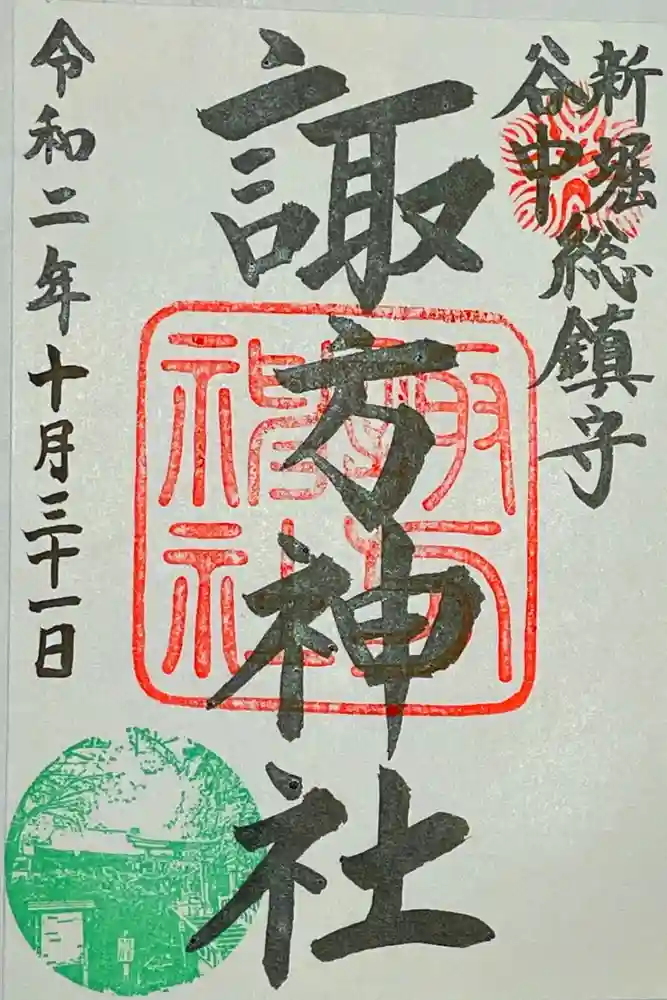 新堀
谷中
総鎮守
諏方神社
諏方神社
令和二年十月三十一日